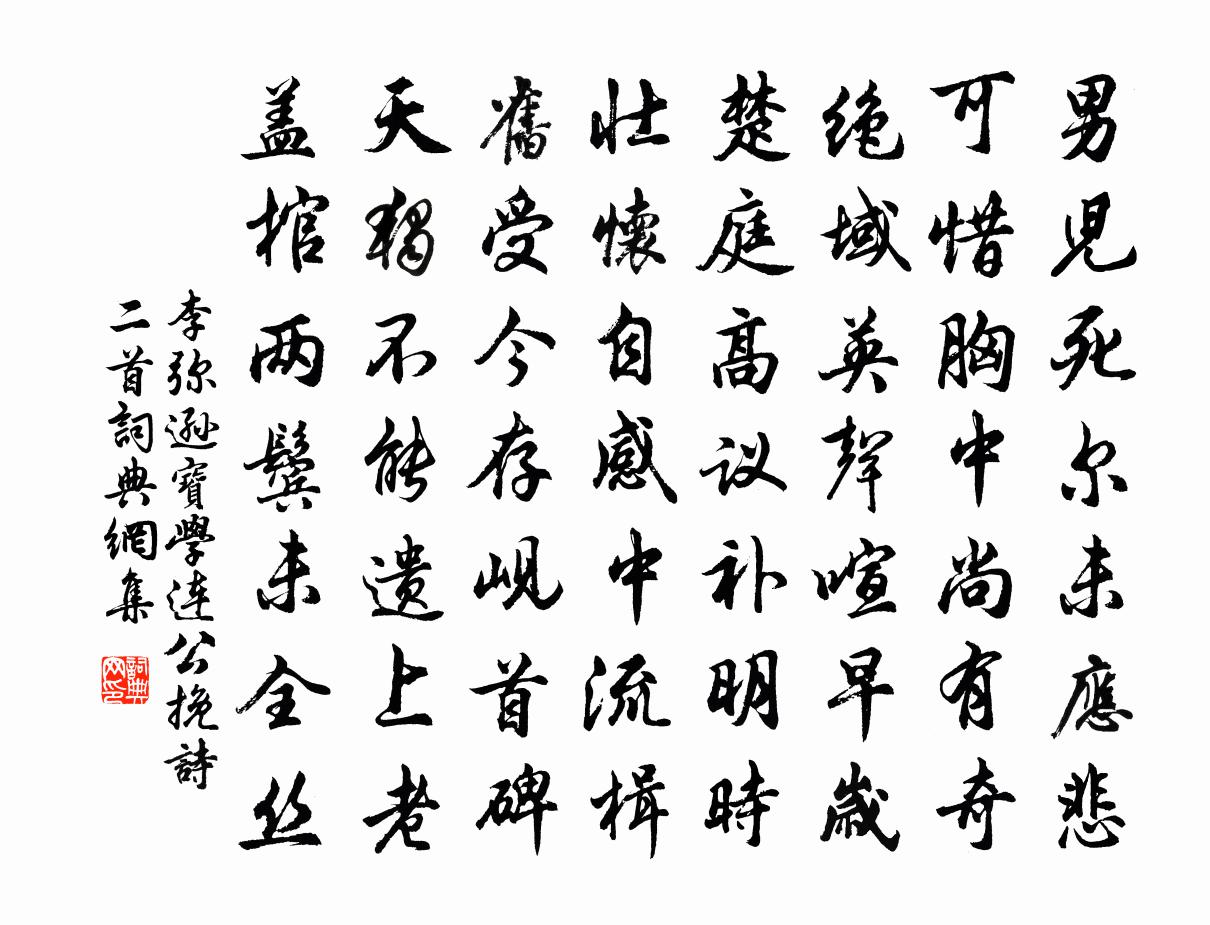 男児死尔未應悲
可惜胸中尚有奇
绝域英聲喧早歲
楚庭高议补明時
壮懷自感中流楫
舊受今存岘首碑
天独不能遗上老
盖棺两鬓未全丝
李弥遜寶學连公挽詩
二首詞典網集
詞典网印